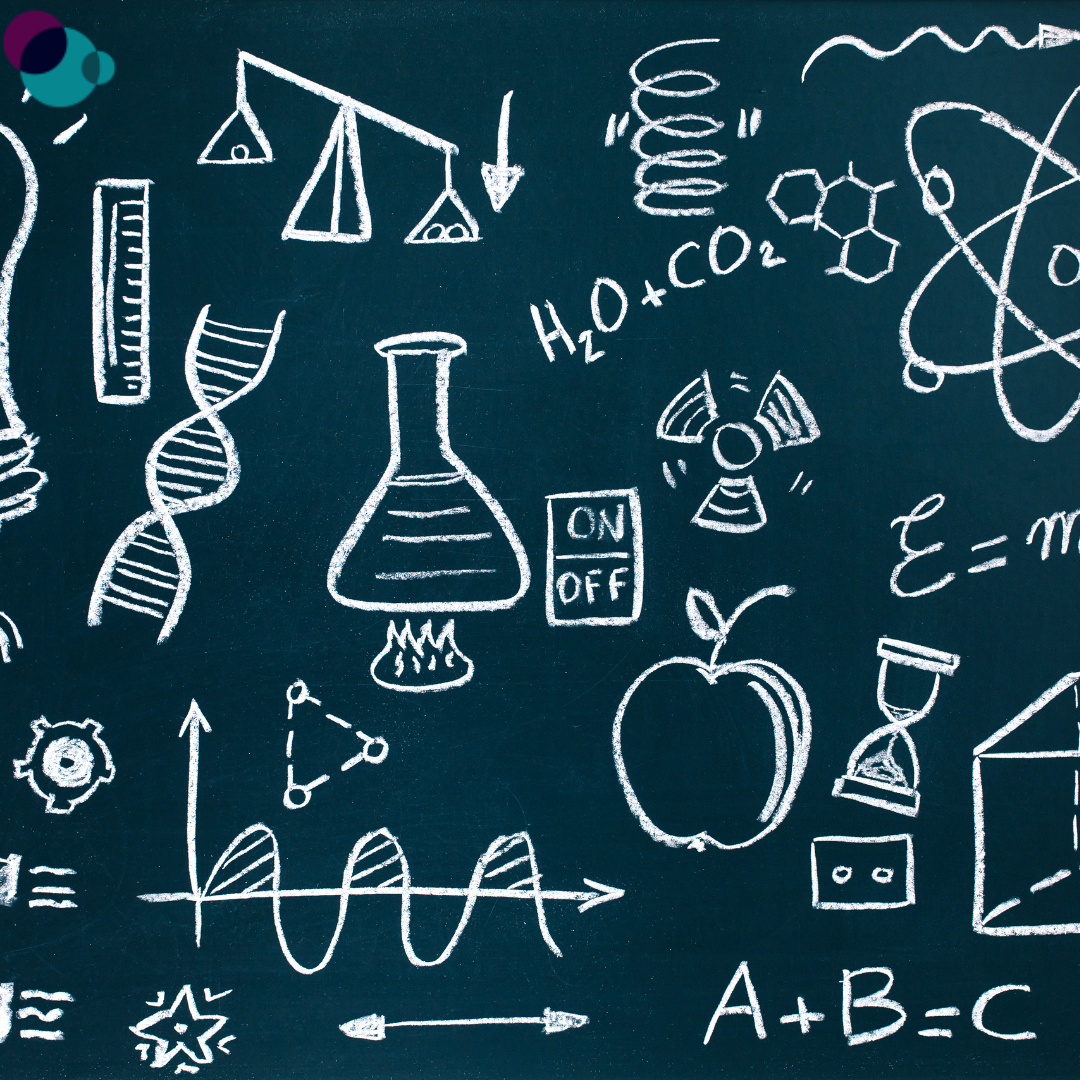 H₂O + CO₂
ON
OFF
E = m
A + B = C